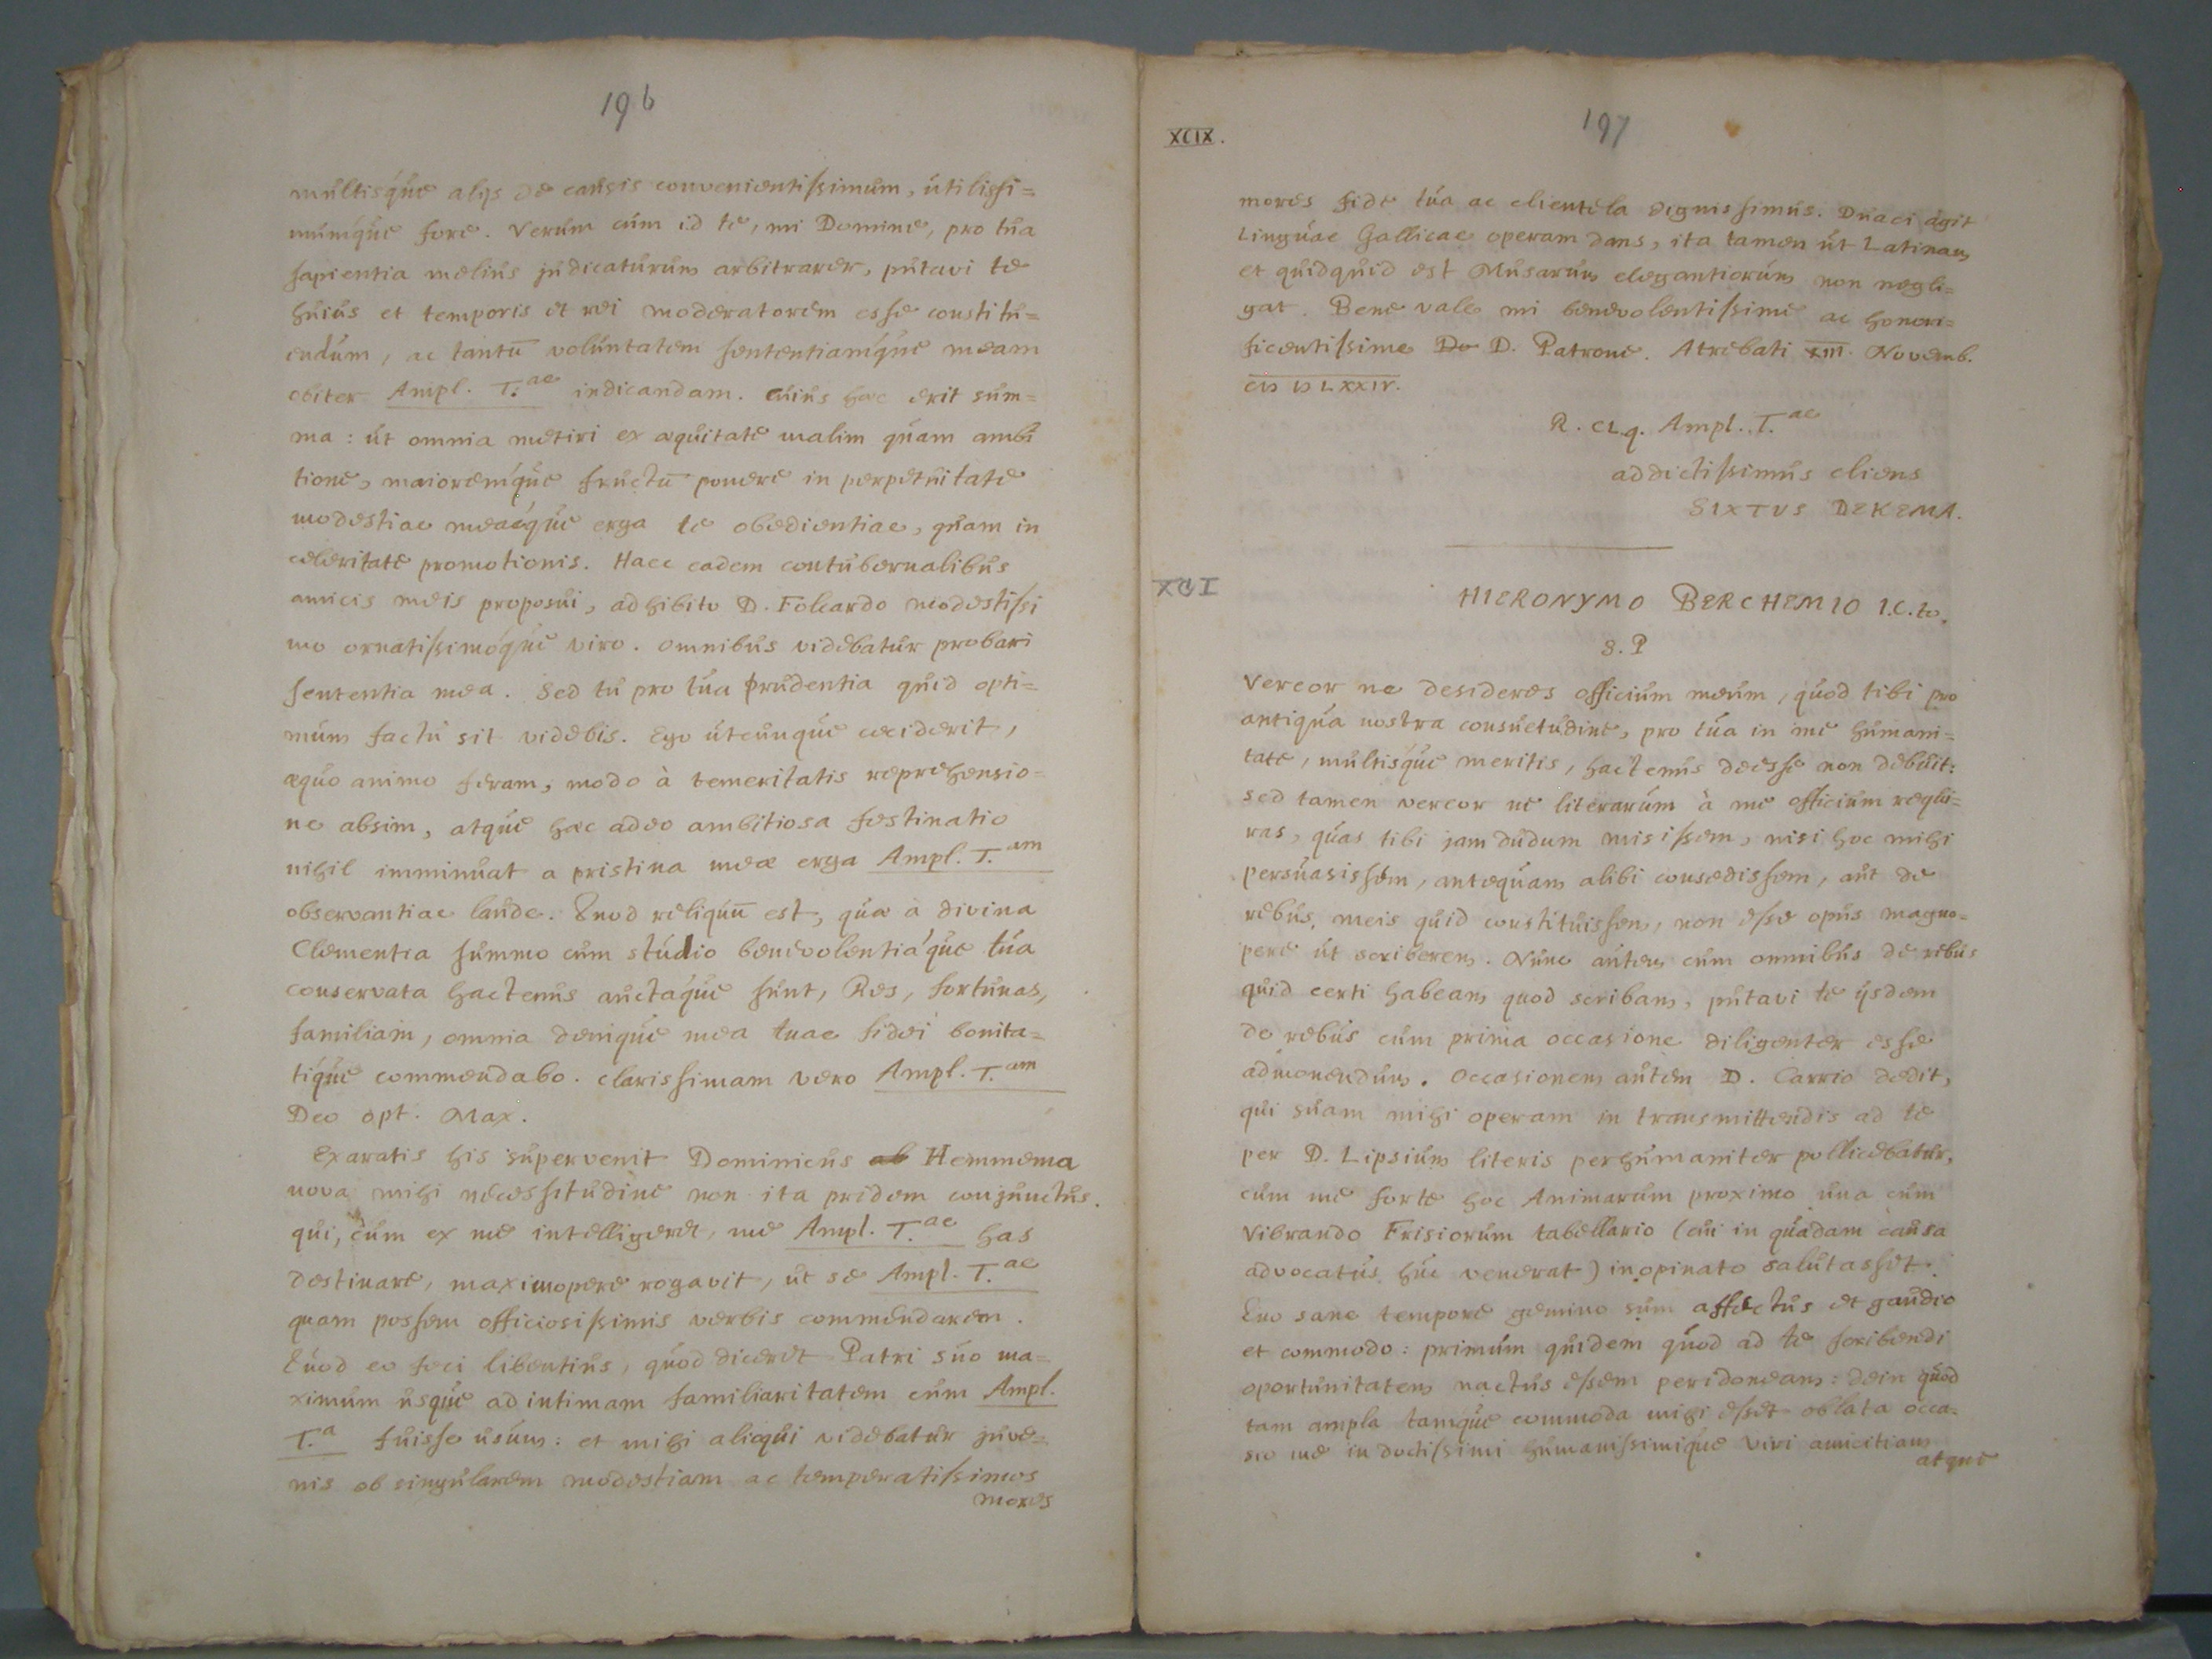 196
multisque alijs de causis convenientissimum, utilissi=
mumque fore. Verum cum id te, mi Domine, pro tua
sapientia melius judicaturum arbitrarer, putavi te
huius et temporis et rei moderatorem esse constitu=
endum, ac tantū voluntatem sententiamque meam
obiter Ampl. T.ae indicandam. Cuius haec erit sum=
ma: ut omnia metiri ex aequitate malim quam ambi
tione, maioremque fructū ponere in perpetuitate
modestiae meaeque erga te obedientiae, quam in
celeritate promotionis. Haec eadem contubernalibus
amicis meis proposui, adhibito D. Folcardo modestissi
mo ornatissimoque viro. Omnibus videbatur probari
sententia mea. Sed tu pro tua prudentia quid opti=
mum factu sit videbis. Ego utcunque ceciderit,
aequo animo feram, modo à temeritatis reprehensio=
ne absim, atque haec adeo ambitiosa festinatio
nihil imminuat a pristina meae erga Ampl. T.am
observantiae laude. Quod reliquū est, quae a divina
Clementia summo cum studio benevolentiaque tua
conservata hactenus auctaque sunt, Res, fortunas,
familiam, omnia denique mea tuae fidei bonita=
tique commendabo. Clarissimam vero Ampl. T.am
Deo Opt. Max.
Exaratis his supervenit Dominicus ab Hemmema
nova mihi necessitudine non ita pridem conjunctus.
qui, cum ex me intelligeret, me Ampl. T.ae has
destinare, maximopere rogavit, ut se Ampl. T.ae
quam possem officiosissimis verbis commendarem.
Quod eo feci libentius, quod diceret Patri suo ma=
ximum usque ad intimam familiaritatem cum Ampl.
T.a fuisse usum: et mihi alioqui videbatur juve=
nis ob singularem modestiam ac temperatissimos
mores
XCIX.
197
mores fide tua ac clientela dignissimus. Duaci agit
Linguae Gallicae operam dans, ita tamen ut Latinam
et quidquid est Musarum elegantiorum non negli=
gat. Bene vale mi benevolentissime ac honori=
ficentissime Do D. Patrone. Atrebati XIII. Novemb.
CIƆ IƆ LXXIV.
R. Cl.q. Ampl. T.ae
addictissimus cliens
SIXTVS DEKEMA.
XCI
HIERONYMO BERCHEMIO I.C.to.
S. P
Vereor ne desideres officium meum, quod tibi pro
antiqua nostra consuetudine, pro tua in me humani=
tate, multisque meritis, hactenus deesse non debuit:
sed tamen vereor ne literarum à me officium requi=
ras, quas tibi jam dudum misissem, nisi hoc mihi
persuasissem, antequam alibi consedissem, aut de
rebus meis quid constituissem, non esse opus magno=
pere ut scriberem. Nunc autem cum omnibus de rebus
quid certi habeam quod scribam, putavi te ijsdem
de rebus cum prima occasione diligenter esse
admonendum. Occasionem autem D. Carrio dedit,
qui suam mihi operam in transmittendis ad te
per D. Lipsium literis perhumaniter pollicebatur,
cum me forte hoc Animarum proximo una cum
Vibrando Frisiorum tabellario (cui in quadam causa
advocatus huc venerat) inopinato salutasset.
Quo sane tempore gemino sum affectus et gaudio
et commodo: primum quidem quod ad te scribendi
oportunitatem nactus essem peridoneam: dein quod
tam ampla tamque commoda mihi esset oblata occa=
sio me in doctissimi humanissimique viri amicitiam
atque